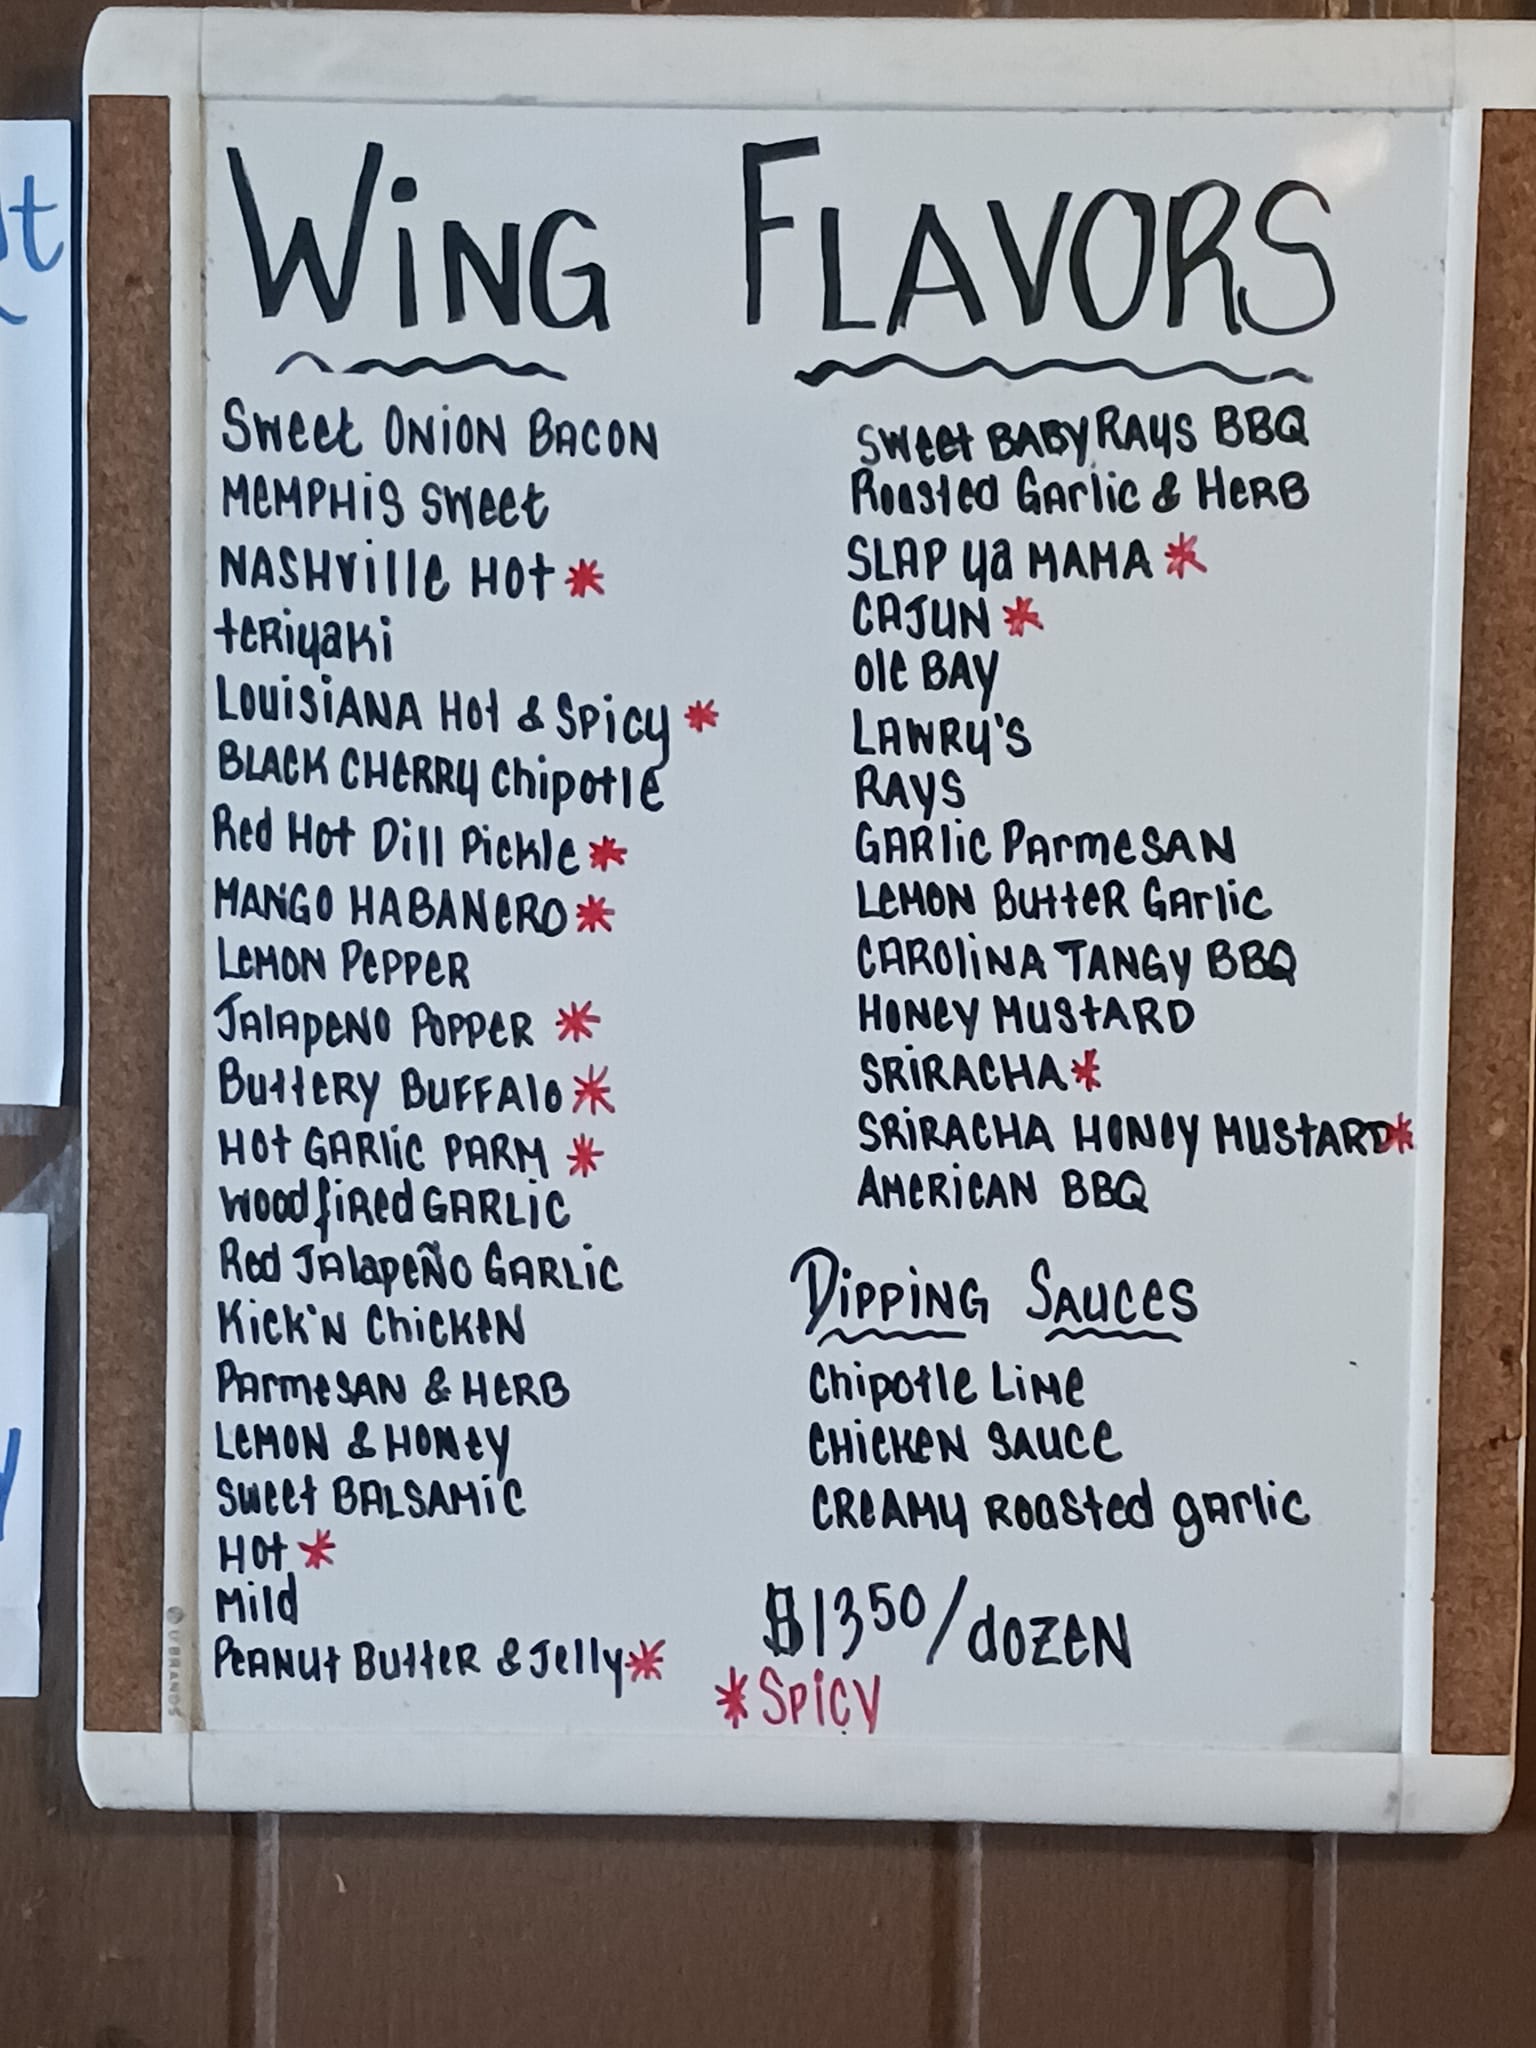 WiNG FLAVORS
Sweet ONiON BACON
MeMPHiS Sweet
NASHville Hot *
teRiyaki
LouisiANA Hot & Spicy *
BLACK CHeRRy Chipotle
Red Hot Dill Pickle *
MANGO HABANeRO *
LeMON PePPeR
JAlApeNO POPPeR *
ButteRy BuFFAlo *
Hot GARlic PARM *
Woodfired GARLiC
Red JAlapeÑo GARLiC
Kick'N ChickeN
ParmeSAN & HeRB
LeMON & HONey
Sweet BALSAMiC
Hot *
Mild
PeANut ButteR & Jelly *
Sweet BABy RAys BBQ
Roasted Garlic & HeRB
SLAP ya MAMA *
CAJUN *
Ole BAY
LAWRy'S
RAYS
GARlic ParmeSAN
LeMON ButteR Garlic
CAROliNA TANGy BBQ
HONey MustARD
SRiRACHA *
SRiRACHA HONey MustARD *
AMeRiCAN BBQ
DiPPiNG SAUCeS
Chipotle LiMe
CHiCKeN SAUCe
CReAMy Roasted garlic
$13.50/dozeN
*SPiCY
UBRANDS